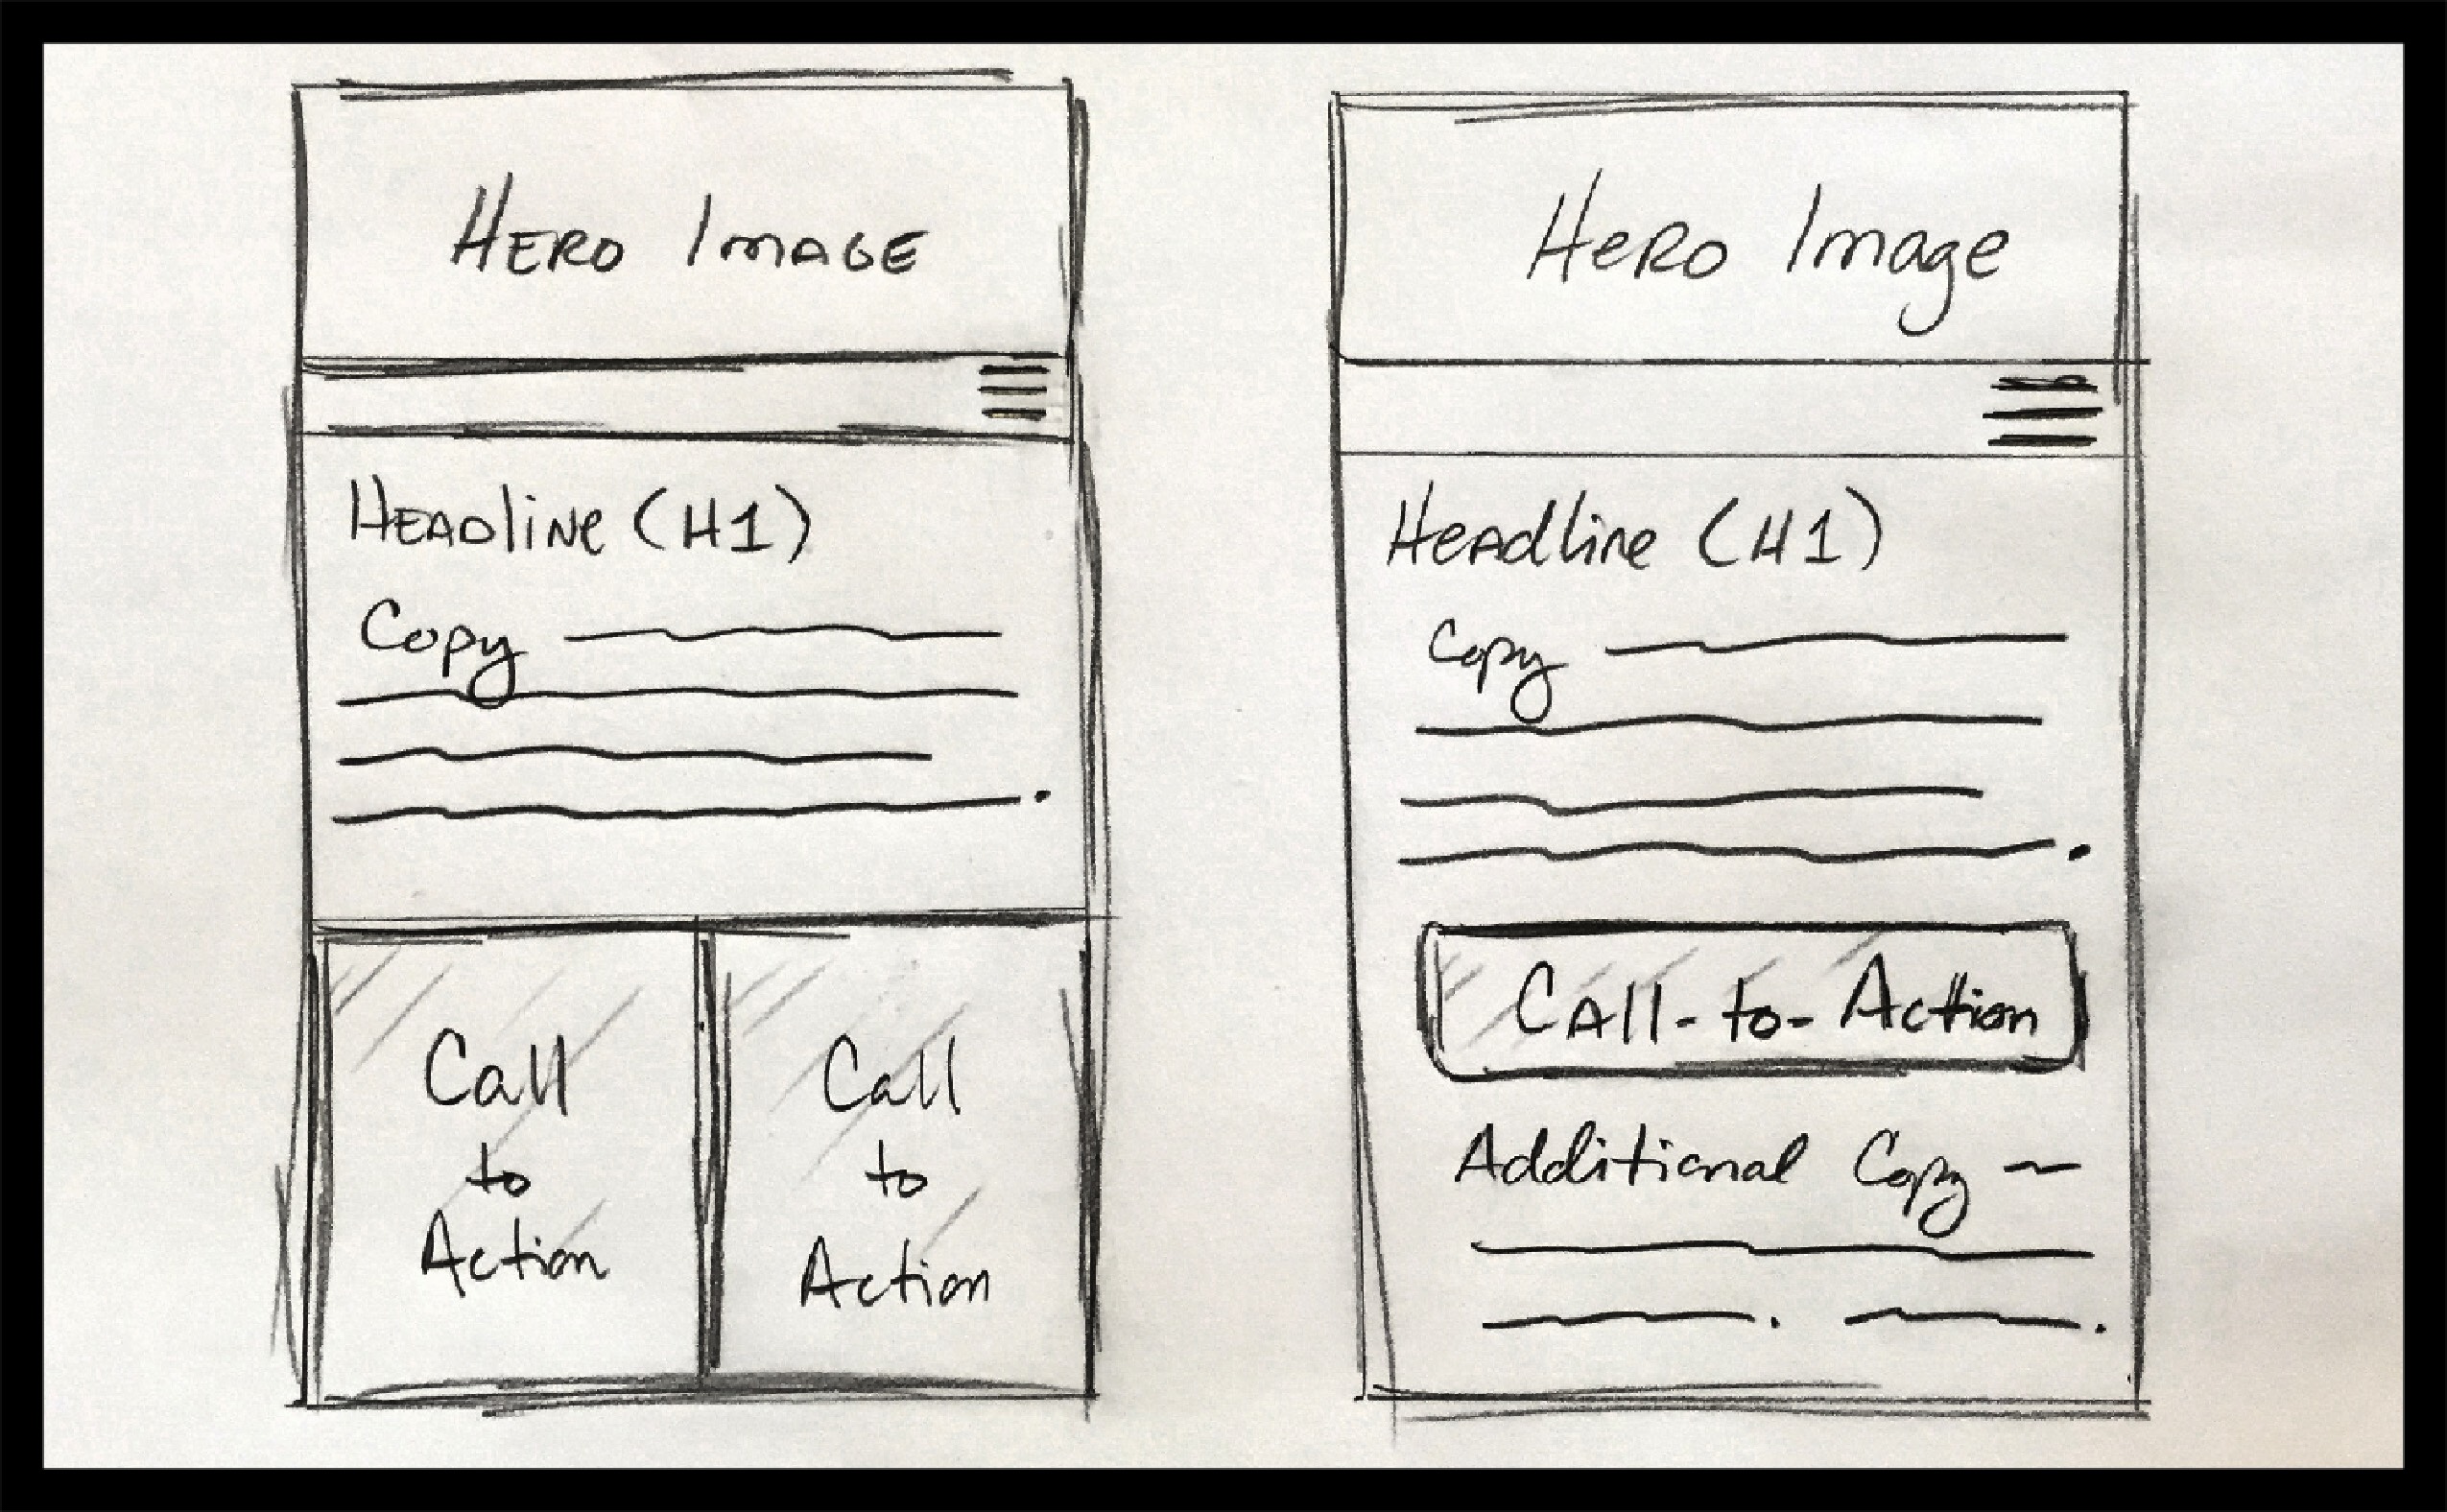 HERO IMAGE
HEADline (H1)
Copy
Call
to
Action
Call
to
Action
HeRo Image
HeAdline (H1)
Copy
CAll-to-Action
Additional Copy